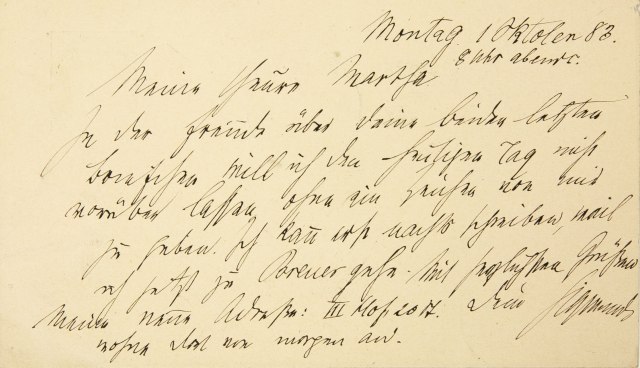 Montag 1 Oktober 83.
8 Uhr abends.
Meine theure Martha
In der Freude über deine beiden letzten
Briefchen will ich den heutigen Tag nicht
vorüber lassen ohne ein Zeichen von mir
zu geben. Ich kann erst nachts schreiben, weil
ich jetzt zu Breuer gehe. Mit herzlichsten Grüßen
Dein Sigmund
Meine neue Adresse: III Hof, 20 Th.
wohne dort von morgen an.